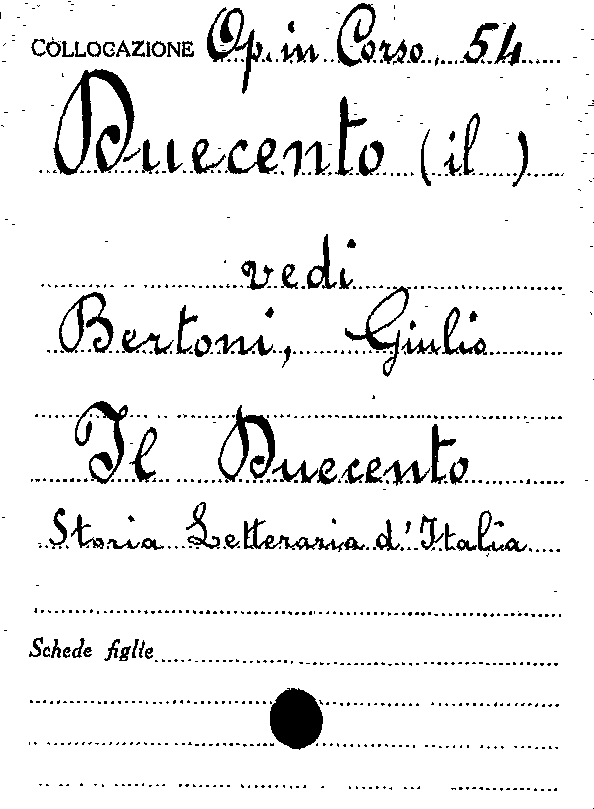 COLLOCAZIONE Op. in Corso. 54
Duecento (il)
vedi
Bertoni, Giulio
Il Duecento
Storia Letteraria d'Italia
Schede figlie